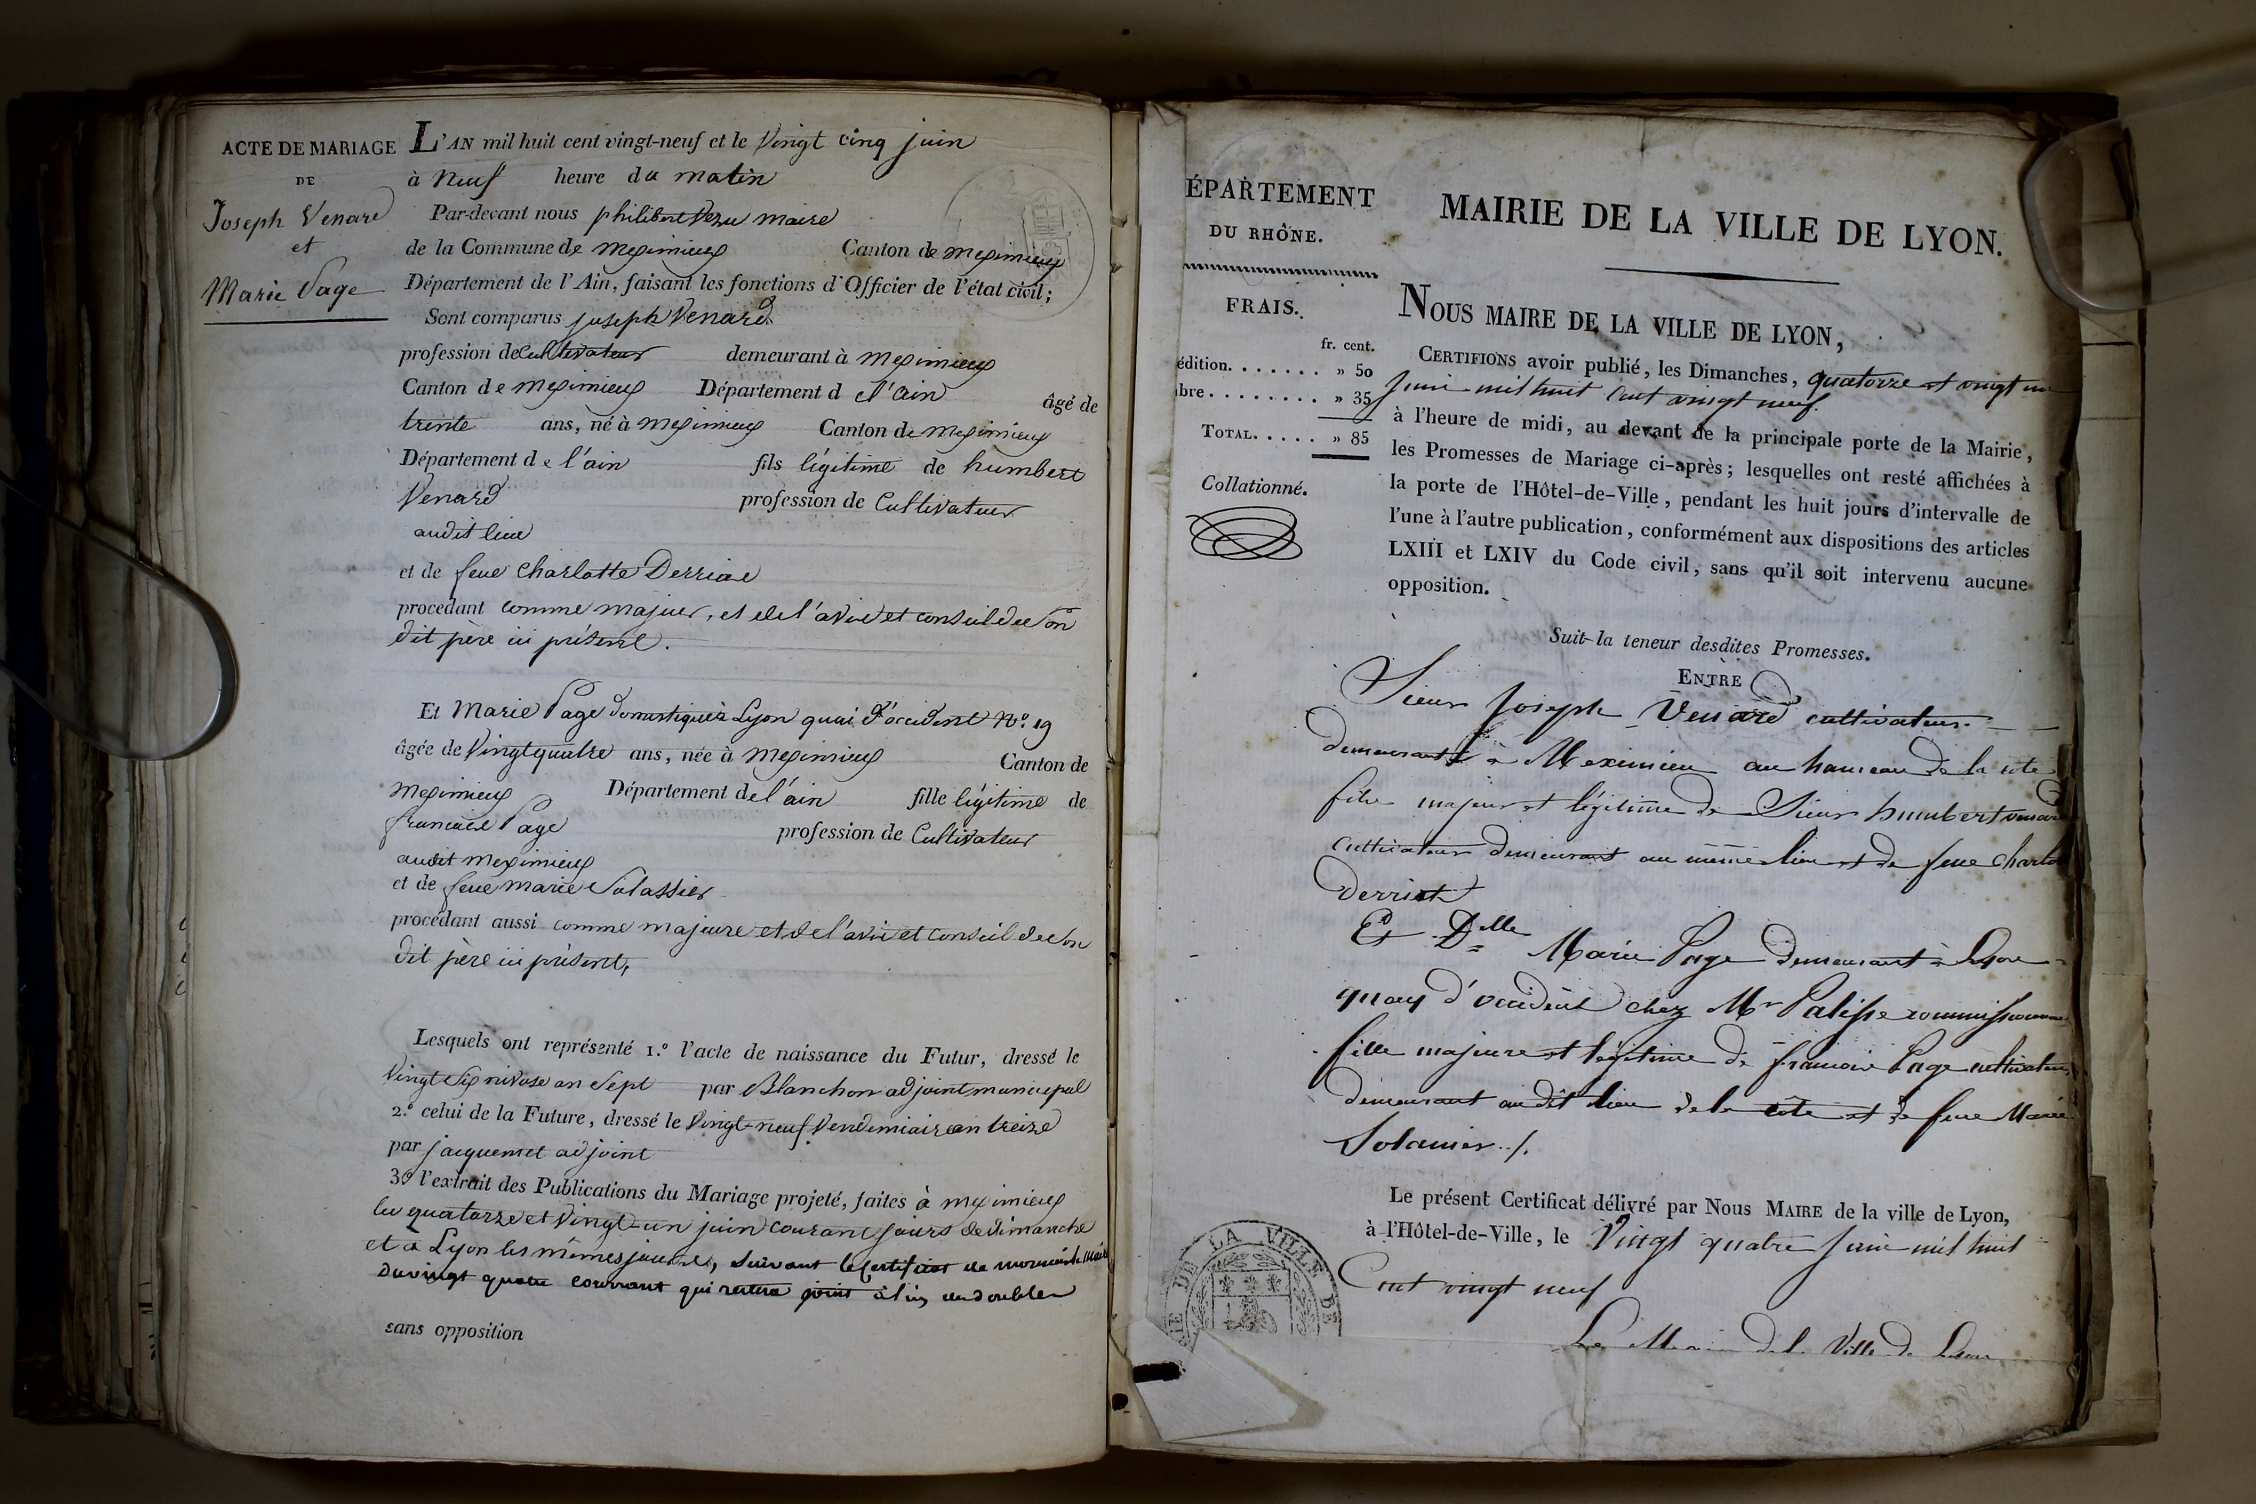 ACTE DE MARIAGE
DE
Joseph Venard
et
Marie Page
L'AN mil huit cent vingt-neuf et le Vingt cinq juin
à Neuf heure du matin
Par-devant nous philibert Vezu maire
de la Commune de meximieux Canton de meximieux
Département de l'Ain, faisant les fonctions d'Officier de l'état civil;
Sont comparus joseph Venard
profession de Cultivateur demeurant à meximieux
Canton de meximieux Département de l'ain âgé de
trente ans, né à meximieux Canton de meximieux
Département de l'ain fils légitime de humbert
Venard profession de Cultivateur
audit lieu
et de feue Charlotte
procédant comme majeur, et de l'avis et conseil de son
dit père ici présent.
Et Marie Page domestique à Lyon quai d'occident No. 19
âgée de Vingt quatre ans, née à meximieux Canton de
meximieux Département de l'ain fille légitime de
françois Page profession de Cultivateur
audit meximieux
et de feue marie
procédant aussi comme majeure et de l'avis et conseil de son
dit père ici présent,
Lesquels ont représenté 1.º l'acte de naissance du Futur, dressé le
Vingt six nivose an sept par Blanchon adjoint municipal
2.º celui de la Future, dressé le Vingt-neuf Vendemiaire an treize
par jacquemet adjoint
3º l'extrait des Publications du Mariage projeté, faites à meximieux
les quatorze et Vingt-un juin courant jours de dimanche
et à Lyon les mêmes jours, suivant le certificat de monsieur le Maire
du vingt quatre courrant qui restera joint à l'un des doubles
sans opposition
ÉPARTEMENT
DU RHÔNE.
FRAIS.
fr. cent.
édition. . . . . . . » 50
bre. . . . . . . . » 35
TOTAL. . . . . » 85
Collationné.
MAIRIE DE LA VILLE DE LYON.
NOUS MAIRE DE LA VILLE DE LYON,
CERTIFIONS avoir publié, les Dimanches, quatorze et vingt un
Juin mil huit cent vingt neuf.
à l'heure de midi, au devant de la principale porte de la Mairie,
les Promesses de Mariage ci-après; lesquelles ont resté affichées à
la porte de l'Hôtel-de-Ville, pendant les huit jours d'intervalle de
l'une à l'autre publication, conformément aux dispositions des articles
LXIII et LXIV du Code civil, sans qu'il soit intervenu aucune
opposition.
Suit la teneur desdites Promesses.
ENTRE
Sieur Joseph Venard cultivateur
demeurant à Meximieu au hameau de la cote
fils majeur et légitime de Sieur humbert venard
cultivateur demeurant au même lieu et de feue Charlo
Derriat
Et Dlle Marie Page demeurant à Lyon
quay d'occident chez Mr Palisse commissionnaire
fille majeure et légitime de françois Page cultivateur
demeurant au dit lieu de la côte et de feue Marie
Le présent Certificat délivré par Nous MAIRE de la ville de Lyon,
à l'Hôtel-de-Ville, le Vingt quatre Juin mil huit
Cent vingt neuf
Le Maire de la Ville de Lyon
DE LA VILLE DE